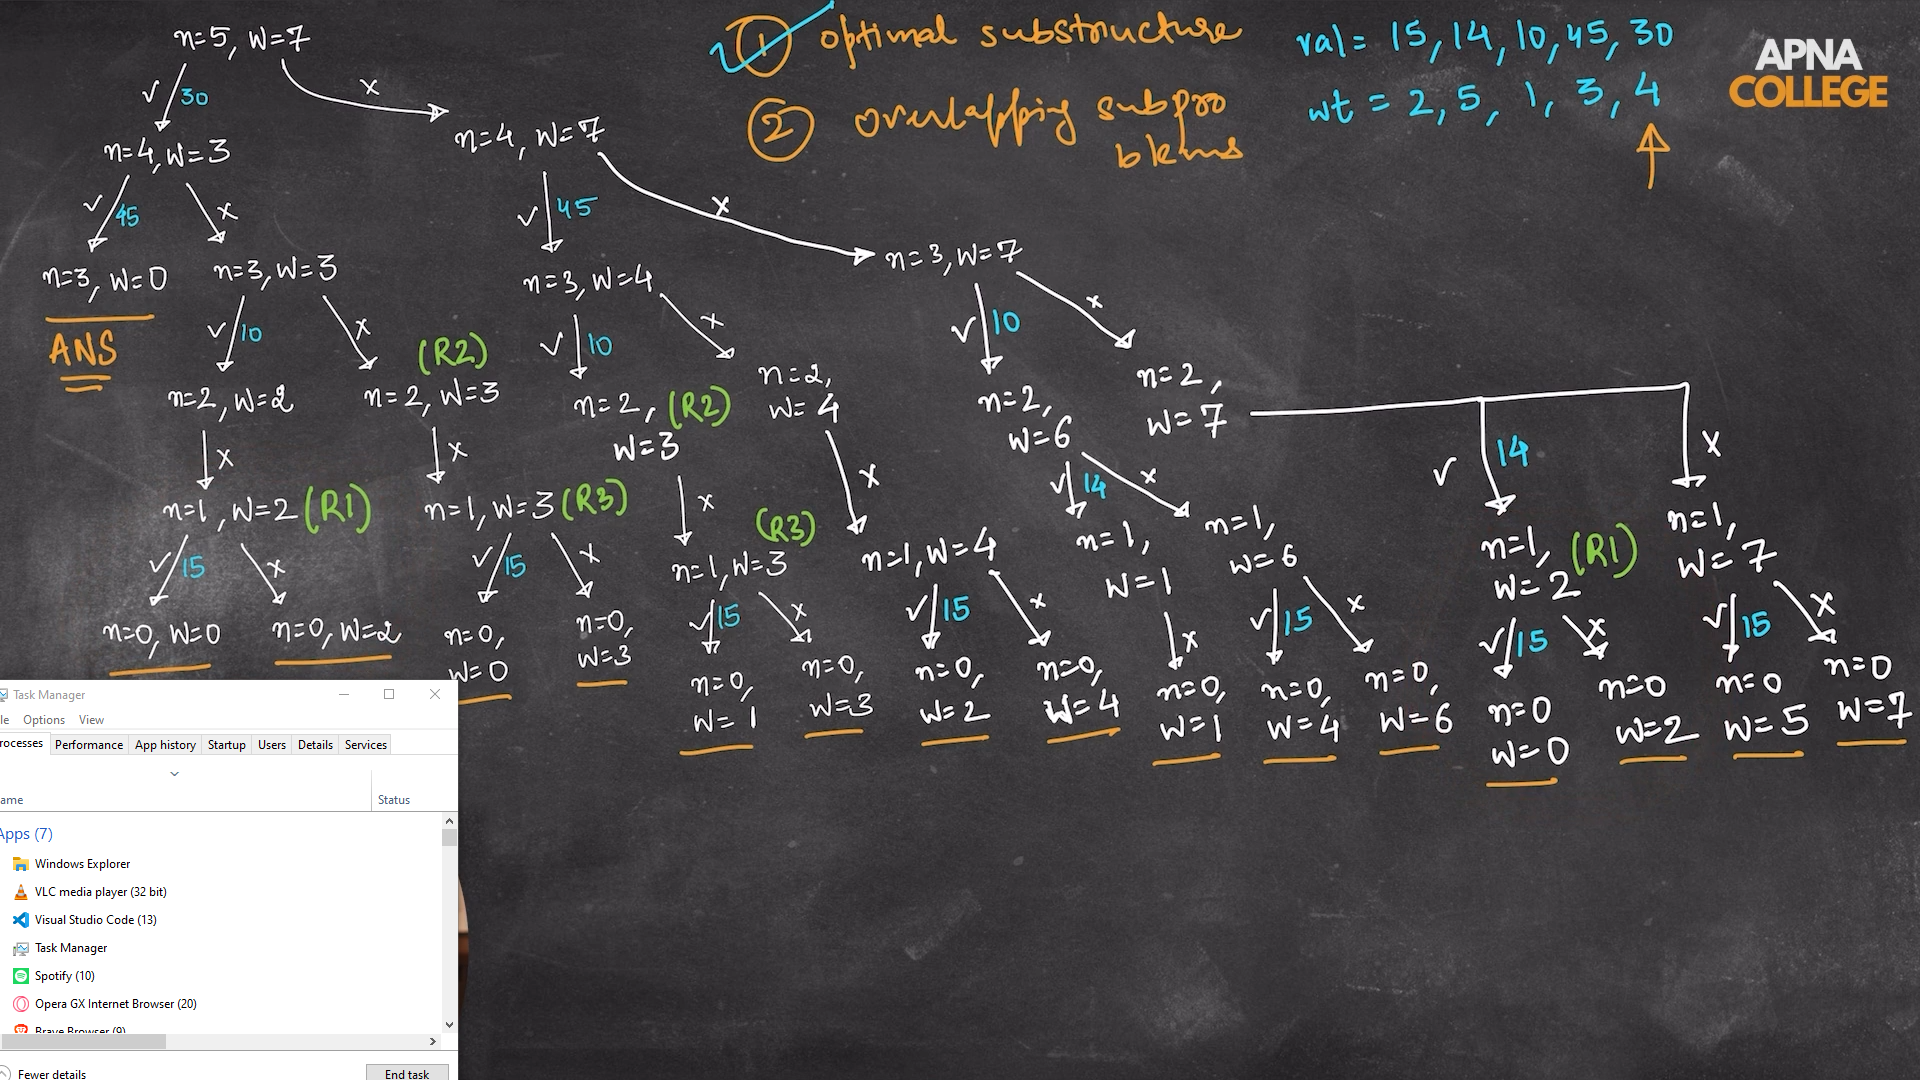 n=5, W=7
① optimal substructure
val= 15, 14, 10, 45, 30
APNA
COLLEGE
✓ 30
x
② overlapping subpro
blems
wt = 2, 5, 1, 3, 4
n=4, W=3
n=4, W=7
✓ 45
x
✓ 45
x
n=3, W=0
n=3, W=3
n=3, W=4
n=3, W=7
ANS
✓ 10
x
✓ 10
x
✓ 10
x
(R2)
n=2, W=2
n=2, W=3
n=2,
W=3
(R2)
n=2,
W=4
n=2,
W=6
n=2,
W=7
x
x
x
x
✓ 14
x
✓ 14
x
n=1, W=2 (R1)
n=1, W=3 (R3)
(R3)
n=1, W=3
n=1, W=4
n=1,
W=1
n=1,
W=6
n=1,
W=2
(R1)
n=1,
W=7
✓ 15
x
✓ 15
x
✓ 15
x
✓ 15
x
x
✓ 15
x
✓ 15
x
✓ 15
x
n=0, W=0
n=0, W=2
n=0,
W=0
n=0,
W=3
n=0,
W=1
n=0,
W=3
n=0,
W=2
n=0,
W=4
n=0,
W=1
n=0,
W=4
n=0,
W=6
n=0
W=0
n=0
W=2
n=0
W=5
n=0
W=7
Task Manager
le Options View
rocesses Performance App history Startup Users Details Services
ame Status
Apps (7)
Windows Explorer
VLC media player (32 bit)
Visual Studio Code (13)
Task Manager
Spotify (10)
Opera GX Internet Browser (20)
Brave Browser (9)
Fewer details
End task